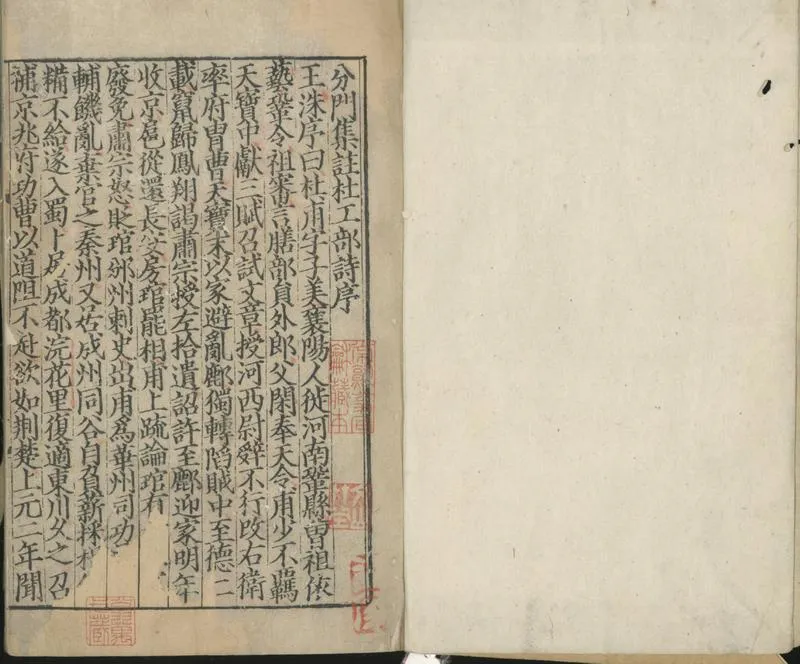 分門集註杜工部詩序
王洙序曰杜甫字子美襄陽人徙河南鞏縣曾祖依
藝鞏令祖審言膳部員外郎父閑奉天令甫少不羈
天寶中獻三賦召試文章授河西尉辭不行改右衛
率府胄曹天寶末以家避亂鄜獨轉陷賊中至德二
載竄歸鳳翔謁肅宗授左拾遺詔許至鄜迎家明年
收京邑從還長安房琯罷相甫上疏論琯有
廢免肅宗怒貶琯邠州刺史出甫為華州司功
輔饑亂棄官之秦州又居成州同谷自負薪採
糒不給遂入蜀卜居成都浣花里復適東川久之召
補京兆府功曹以道阻不赴欲如荊楚上元二年聞